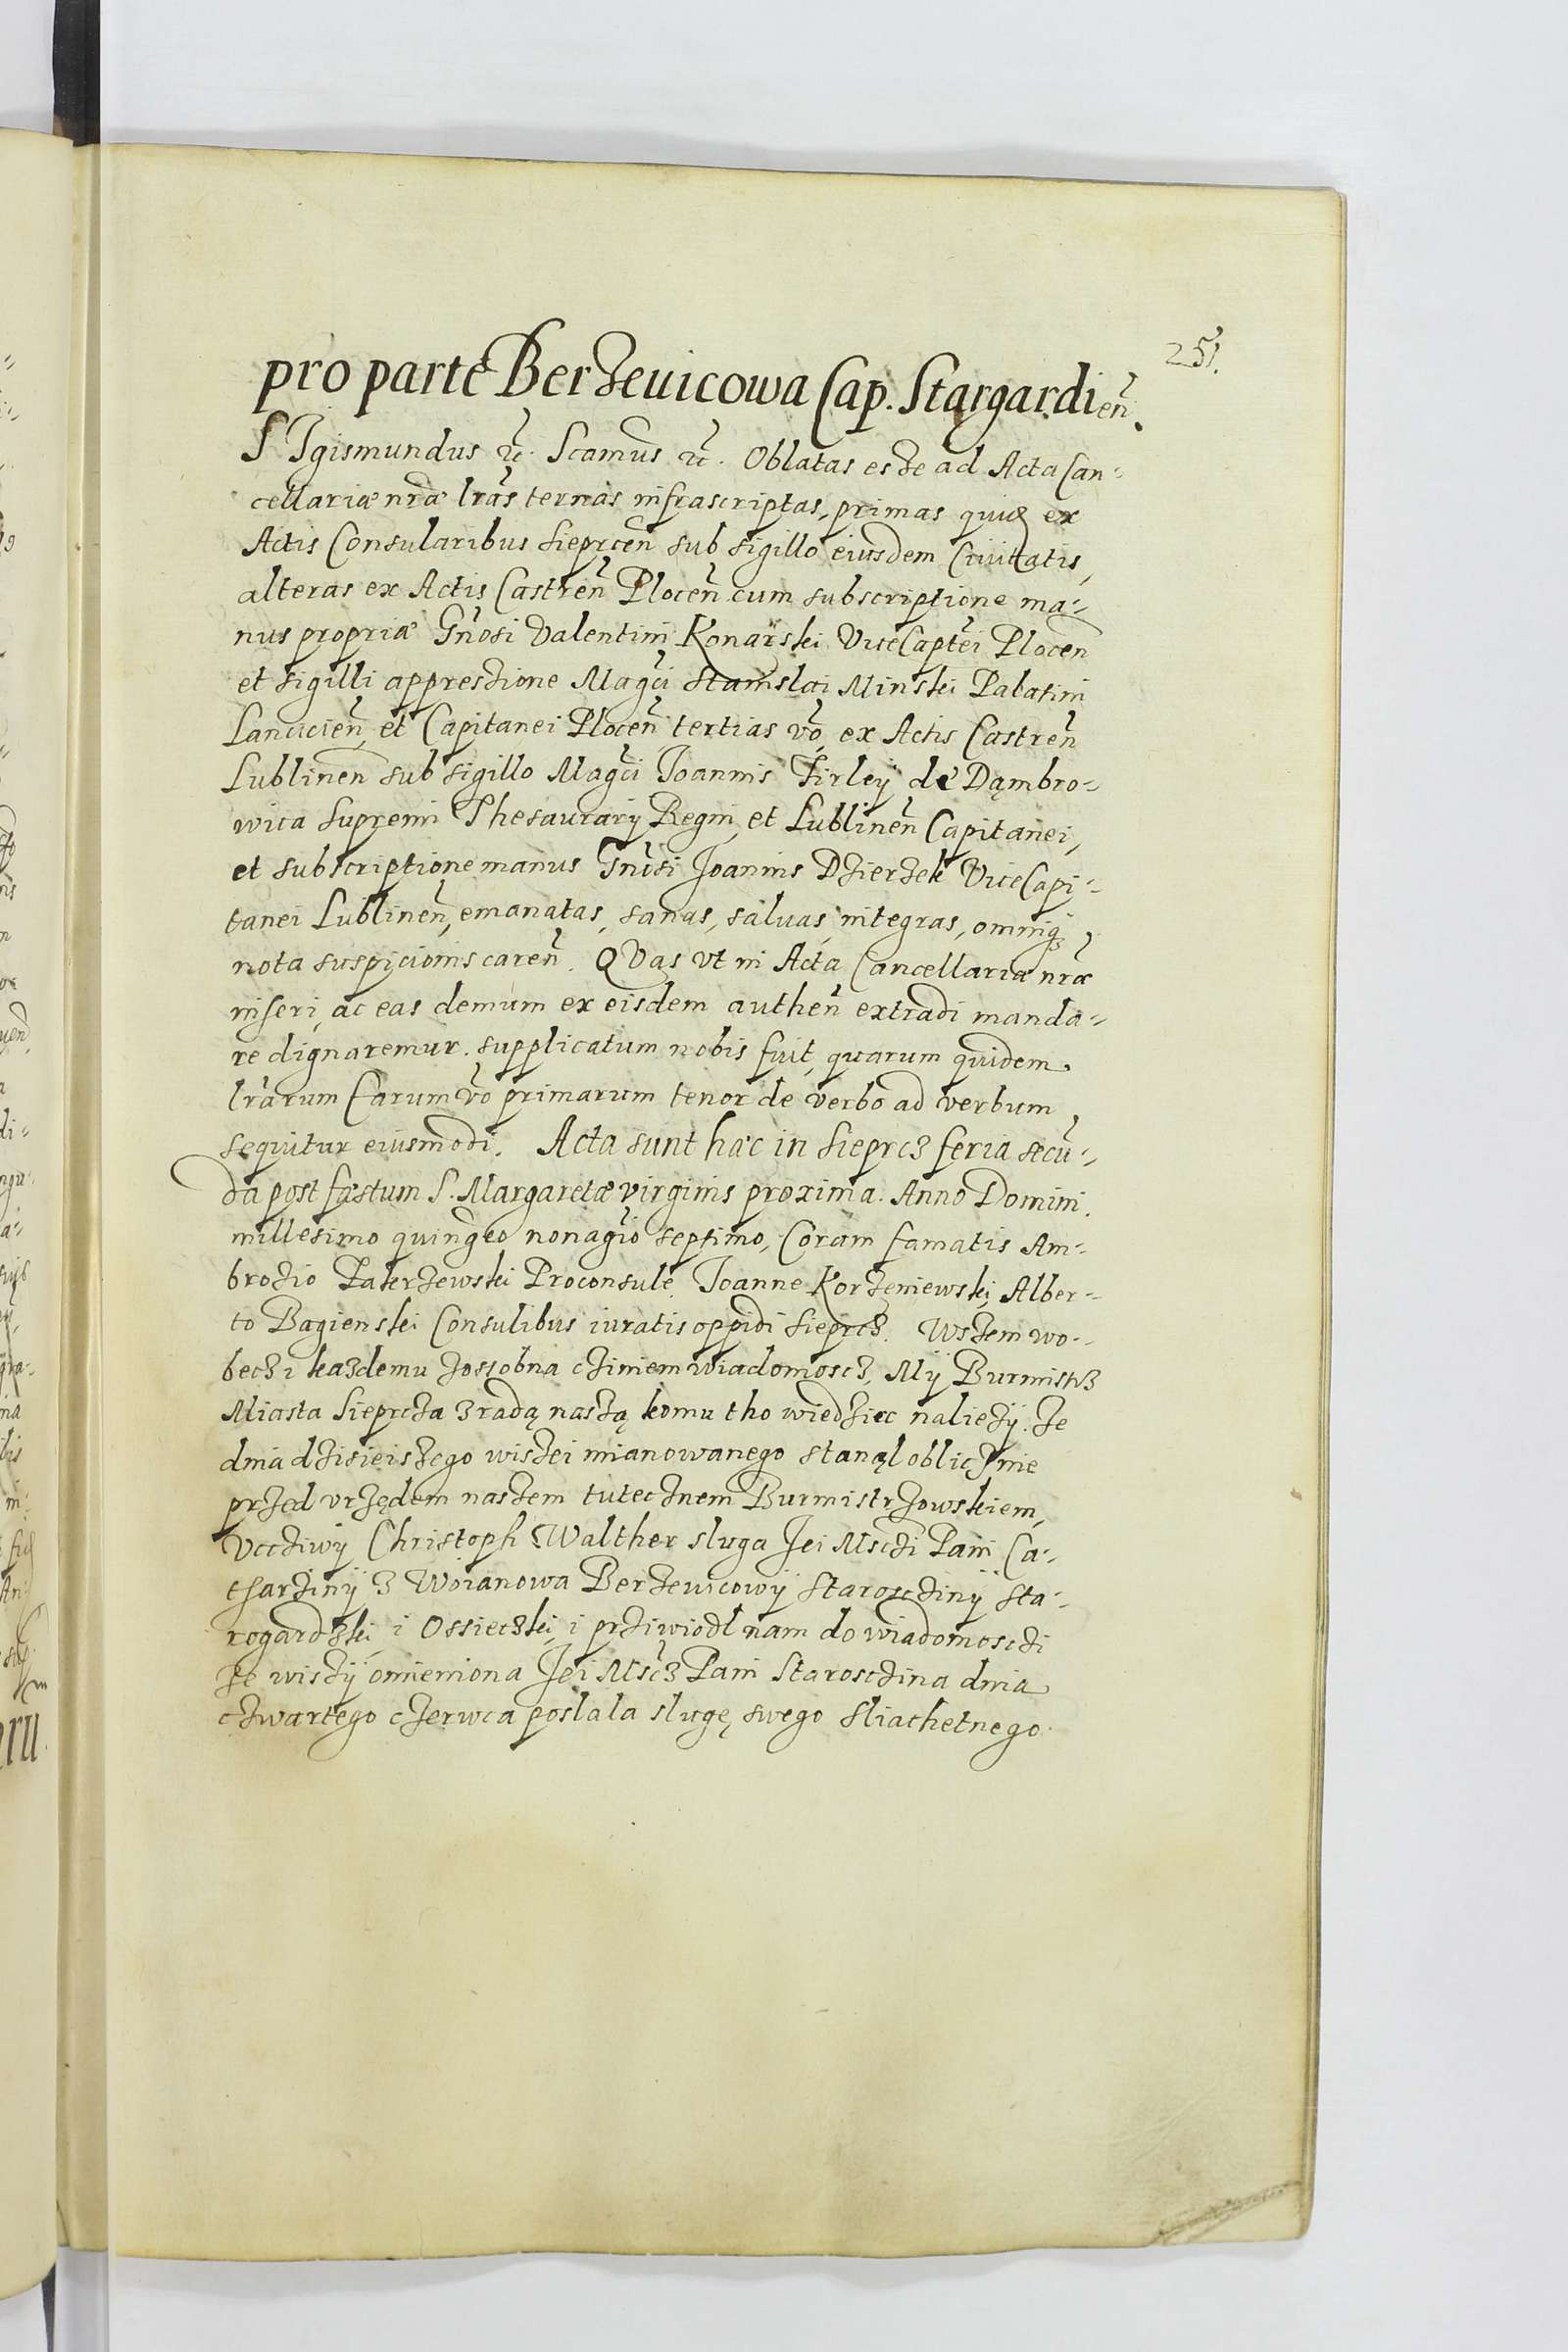 251.
pro parte Berzeuicowa Cap. Stargardień.
SIgismundus &c. Scamus &c. Oblatas esse ad Acta Can-
cellariæ nræ lras ternas infrascriptas, primas quid ex
Actis Consularibus Sieprcen sub sigillo eiusdem Ciuitatis,
alteras ex Actis Castren Plocen cum subscriptione ma-
nus propriæ Gnosi Valentini Konarski ViceCaptei Plocen
et sigilli appressione Magci Stanislai Minski Palatini
Lancicien, et Capitanei Plocen tertias vo, ex Actis Castren
Lublinen sub sigillo Magci Joannis Firleÿ de Dąmbro-
wica Supremi Thesaurarÿ Regni et Lublinen Capitanei,
et subscriptione manus Gnosi Joannis Dzierzek ViceCapi-
tanei Lublinen, emanatas, sanas, saluas, integras, omniq;
nota suspicionis caren. QVas vt in Acta Cancellariæ nræ
inseri, ac eas demum ex eisdem authen extradi manda-
re dignaremur. supplicatum nobis fuit, quarum quidem
lrarum Earum vo primarum tenor de verbo ad verbum
sequitur eiusmodi. Acta sunt hæc in Sieprcz feria secu-
da post festum S. Margaretæ virginis proxima. Anno Domini
millesimo quingeo nonagio septimo, Coram famatis Am-
brozio Paterzewski Proconsule, Joanne Korzeniewski, Alber-
to Bagienski Consulibus iuratis oppidi Sieprcz. Wszem wo-
becz i kazdemu zossobna cziniem wiadomoscz, Mÿ Burmistrz
Miasta Sieprcza z radą naszą komu tho wiedziec naliezÿ. Ze
dnia dzisieiszego wiszei mianowanego stanąl oblicznie
przed vrzędem naszem tutecznem Burmistrzowskiem,
Vcciwÿ Christoph Walther sluga Jei Msczi Pani Ca-
tharzinÿ z Woianowa Berzeuicowÿ Starosczinÿ Sta-
rogardzkei i Ossieczkei, i prziwiodl nam do wiadomosczi
ze wiszÿ omieniona Jei Mscz Pani Starosczina dnia
czwartego czerwca poslala slugę swego Sliachetnego